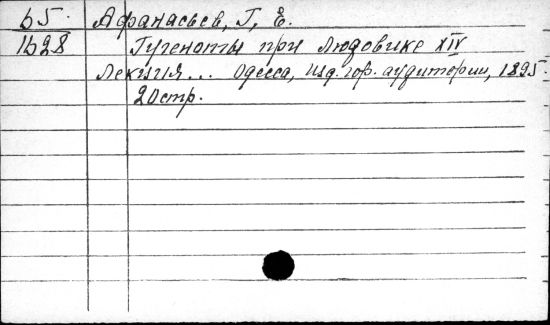 65. Афанасьев, Г. Е.
1628 Гугеноты при Людовике XIV
Лекция... Одесса, Изд. гор. аудитории, 1895.
20стр.